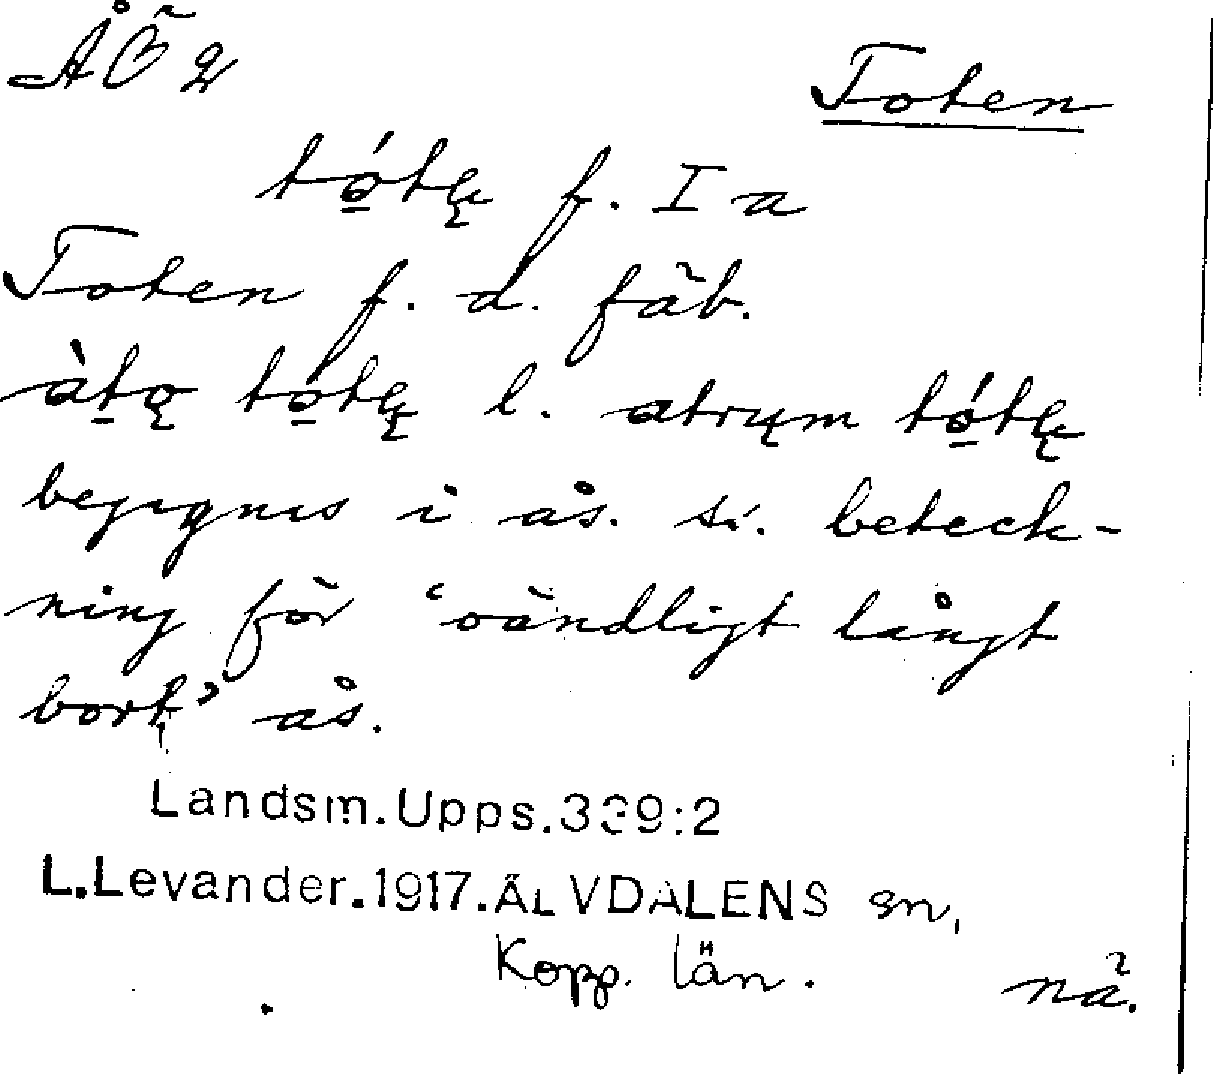 ÅÖ 2
Toten
tó̱tę f. I a
Toten f. d. fäb.
àṯǫ tó̱tę l. atrųm tó̱tę
begagnas i ås. s. beteck-
ning för 'oändligt långt
bort' ås.
Landsm.Upps.339:2
L.Levander.1917.ÄLVDALENS sn,
Kopp. län.
nä.